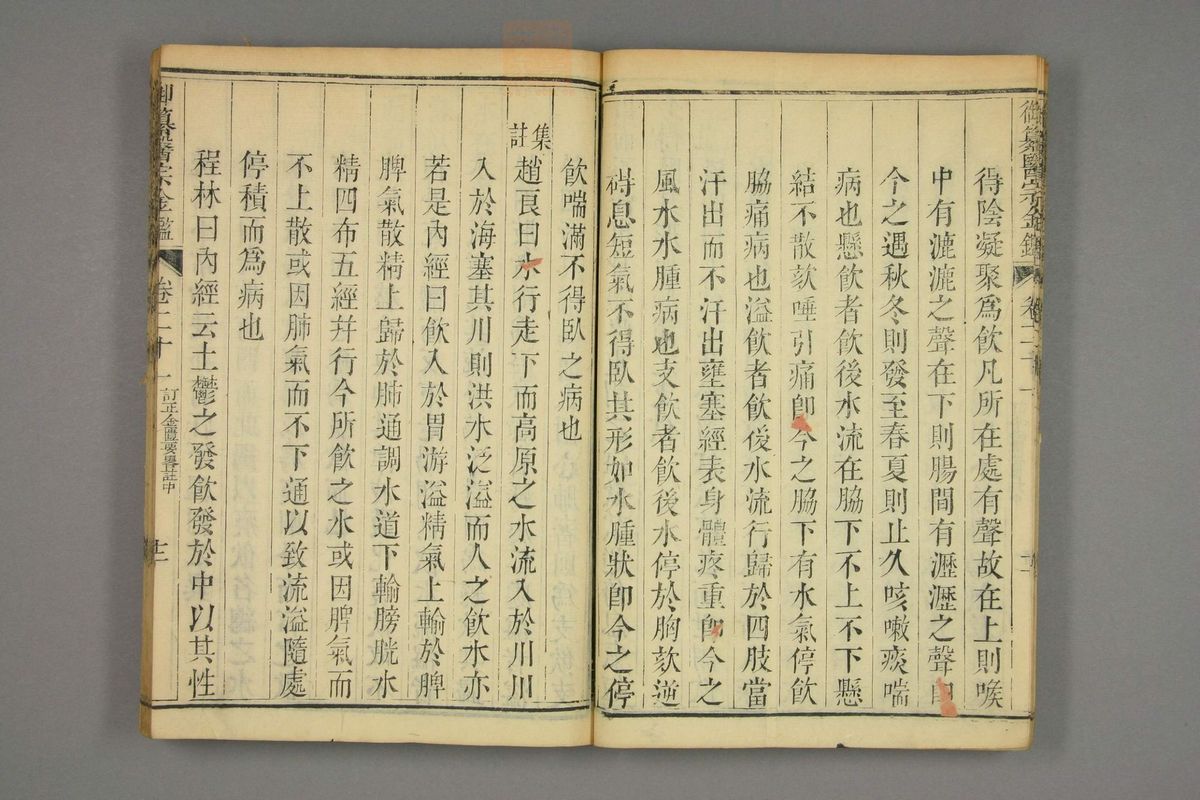 御纂醫宗金鑑 卷二十一
得陰凝聚爲飲凡所在處有聲故在上則喉
中有漉漉之聲在下則腸間有瀝瀝之聲卽
今之遇秋冬則發至春夏則止久咳嗽痰喘
病也懸飲者飲後水流在脇下不上不下懸
結不散欬唾引痛卽今之脇下有水氣停飲
脇痛病也溢飲者飲後水流行歸於四肢當
汗出而不汗出壅塞經表身體疼重卽今之
風水水腫病也支飲者飲後水停於胸欬逆
碍息短氣不得臥其形如水腫狀卽今之停
飲喘滿不得臥之病也
集註趙良曰水行走下而高原之水流入於川川
入於海塞其川則洪水泛溢而人之飲水亦
若是內經曰飲入於胃游溢精氣上輸於脾
脾氣散精上歸於肺通調水道下輸膀胱水
精四布五經幷行今所飲之水或因脾氣而
不上散或因肺氣而不下通以致流溢隨處
停積而爲病也
程林曰內經云土鬱之發飲發於中以其性
御纂醫宗金鑑 卷二十一 訂正金匱要畧註中 十二